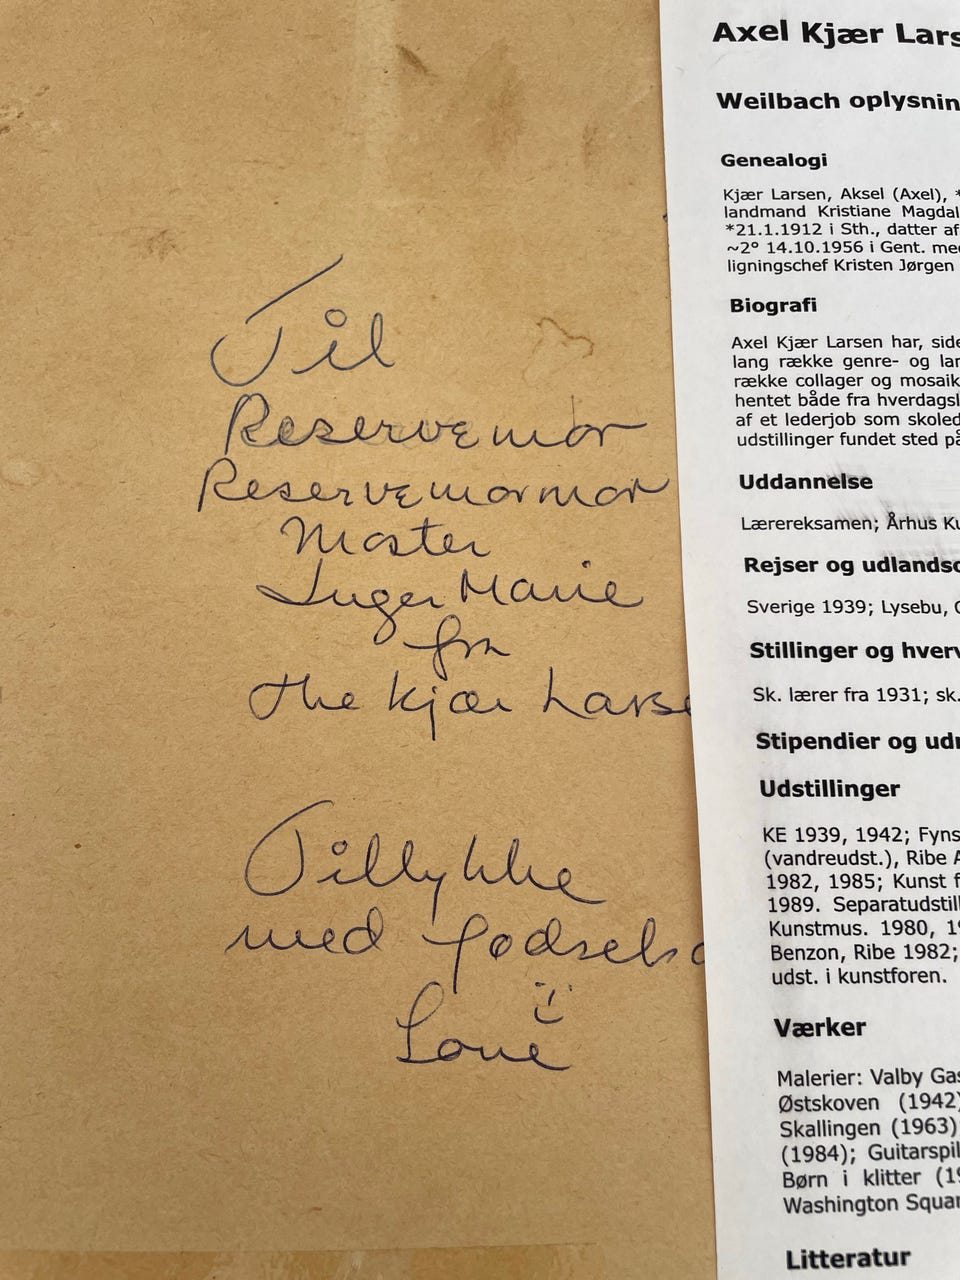 Til
Reservemor
Reservemormor
Moster
Inger Marie
fra
the Kjær Larse
Tillykke
med fødselsd
Lone
Axel Kjær Lars
Weilbach oplysnin
Genealogi
Kjær Larsen, Aksel (Axel), *
landmand Kristiane Magdal
*21.1.1912 i Sth., datter af
~2° 14.10.1956 i Gent. med
ligningschef Kristen Jørgen
Biografi
Axel Kjær Larsen har, side
lang række genre- og lan
række collager og mosaik
hentet både fra hverdagsl
af et lederjob som skoled
udstillinger fundet sted på
Uddannelse
Lærereksamen; Århus Ku
Rejser og udlandso
Sverige 1939; Lysebu, O
Stillinger og hverv
Sk. lærer fra 1931; sk.
Stipendier og udm
Udstillinger
KE 1939, 1942; Fyns
(vandreudst.), Ribe A
1982, 1985; Kunst f
1989. Separatudstill
Kunstmus. 1980, 19
Benzon, Ribe 1982;
udst. i kunstforen.
Værker
Malerier: Valby Gas
Østskoven (1942)
Skallingen (1963)
(1984); Guitarspil
Børn i klitter (19
Washington Squar
Litteratur